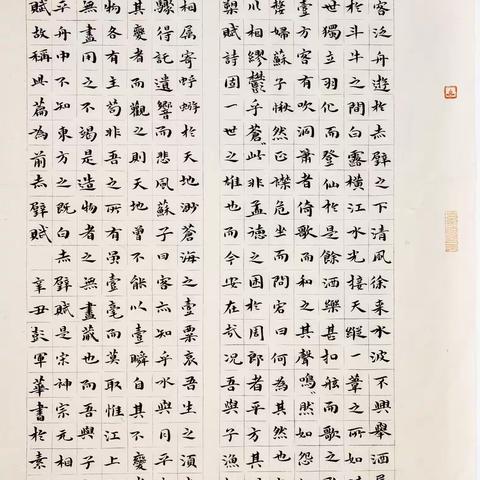 客泛舟遊於赤壁之下清風徐來水波不興舉酒属
於斗牛之間白露橫江水光接天縱一葦之所如
世獨立羽化而登仙於是飲酒樂甚扣舷而歌之
壹方客有吹洞簫者倚歌而和之其聲鳴〃然如怨
嫠婦蘇子愀然正襟危坐而問客曰何為其然也
川相繆鬱乎蒼〃此非孟德之困於周郎者乎方其
槊賦詩固一世之雄也而今安在哉況吾與子漁
相属寄蜉蝣於天地渺蒼海之壹粟哀吾生之須
驟得託遺響而悲風蘇子曰客亦知乎水與月乎
其變者而觀之則天地曾不能以壹瞬自其不變
物各有主苟非吾之所有雖壹毫而莫取惟江上
無盡用之不竭是造物者之無盡蔵也而吾與子
乎舟中不知東方之既白 赤壁賦是宗神宗元相
賦故稱此篇為前赤壁賦 辛丑彭軍華書於素